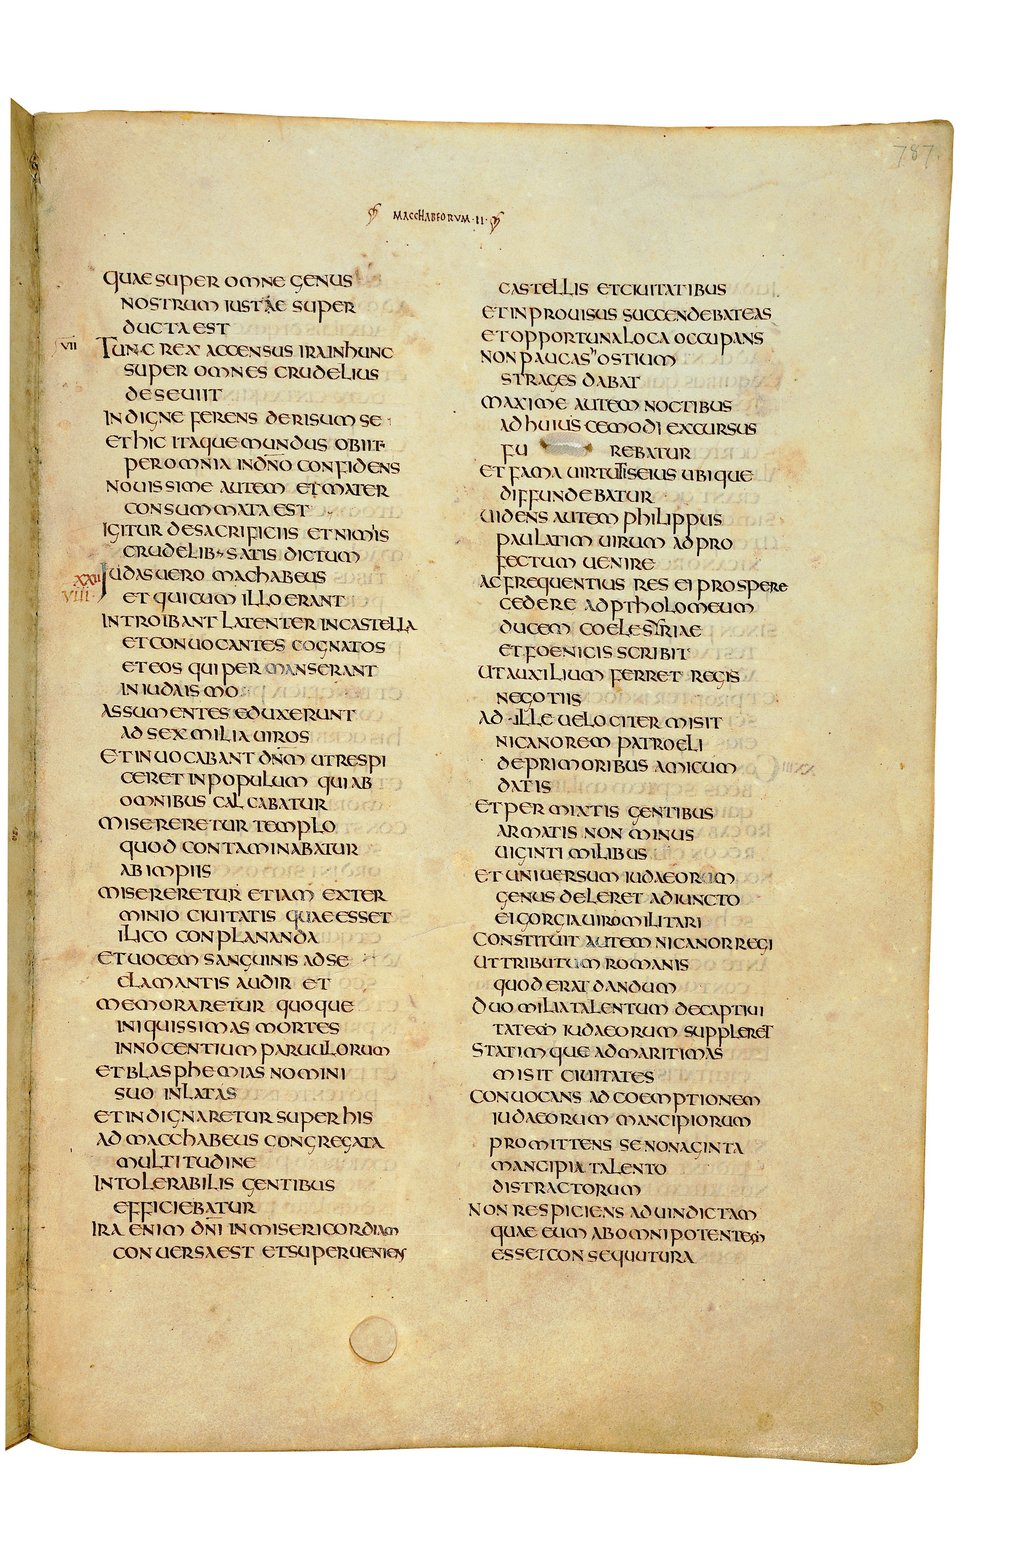 787.
MACCHABEORUM·II·
QUAE SUPER OMNE GENUS
NOSTRUM IUSTAE SUPER
DUCTA EST
VII
TUNC REX ACCENSUS IRA IN HUNC
SUPER OMNES CRUDELIUS
DESEUIIT
INDIGNE FERENS DERISUM SE
ET HIC ITAQUE MUNDUS OBIIT
PER OMNIA IN DÑO CONFIDENS
NOUISSIME AUTEM ET MATER
CONSUMMATA EST
IGITUR DE SACRIFICIIS ET NIMIS
CRUDELIB· SATIS DICTUM
XXII
VIII
IUDAS UERO MACHABEUS
ET QUI CUM ILLO ERANT
INTROIBANT LATENTER IN CASTELLA
ET CONUOCANTES COGNATOS
ET EOS QUI PERMANSERANT
IN IUDAISMO
ASSUMENTES EDUXERUNT
AD SEX MILIA UIROS
ET INUOCABANT DÑM UT RESPI
CERET IN POPULUM QUI AB
OMNIBUS CALCABATUR
MISERERETUR TEMPLO
QUOD CONTAMINABATUR
AB IMPIIS
MISERERETUR ETIAM EXTER
MINIO CIUITATIS QUAE ESSET
ILICO CONPLANANDA
ET UOCEM SANGUINIS AD SE
CLAMANTIS AUDIR ET
MEMORARETUR QUOQUE
INIQUISSIMAS MORTES
INNOCENTIUM PARUULORUM
ET BLASPHEMIAS NOMINI
SUO INLATAS
ET INDIGNARETUR SUPER HIS
AD MACCHABEUS CONGREGATA
MULTITUDINE
INTOLERABILIS GENTIBUS
EFFICIEBATUR
IRA ENIM DÑI IN MISERICORDIAM
CONUERSA EST ET SUPERUENIENS
CASTELLIS ET CIUITATIBUS
ET INPROUISUS SUCCENDEBAT EAS
ET OPPORTUNA LOCA OCCUPANS
NON PAUCAS HOSTIUM
STRAGES DABAT
MAXIME AUTEM NOCTIBUS
AD HUIUSCEMODI EXCURSUS
FU REBATUR
ET FAMA UIRTUTIS EIUS UBIQUE
DIFFUNDEBATUR
UIDENS AUTEM PHILIPPUS
PAULATIM UIRUM AD PRO
FECTUM UENIRE
AC FREQUENTIUS RES EI PROSPERE
CEDERE AD PTHOLOMEUM
DUCEM COELESYRIAE
ET FOENICIS SCRIBIT
UT AUXILIUM FERRET REGIS
NEGOTIIS
AD ILLE UELOCITER MISIT
NICANOREM PATROCLI
DE PRIMORIBUS AMICUM
DATIS
ET PERMIXTIS GENTIBUS
ARMATIS NON MINUS
UIGINTI MILIBUS
ET UNIUERSUM IUDAEORUM
GENUS DELERET ADIUNCTO
EI GORGIA UIRO MILITARI
CONSTITUIT AUTEM NICANOR REGI
UT TRIBUTUM ROMANIS
QUOD ERAT DANDUM
DUO MILIA TALENTUM DE CAPTIUI
TATEM IUDAEORUM SUPPLERET
STATIMQUE AD MARITIMAS
MISIT CIUITATES
CONUOCANS AD COEMPTIONEM
IUDAEORUM MANCIPIORUM
PROMITTENS SE NONAGINTA
MANCIPIA TALENTO
DISTRACTORUM
NON RESPICIENS AD UINDICTAM
QUAE EUM AB OMNIPOTENTEM
ESSET CONSEQUUTURA